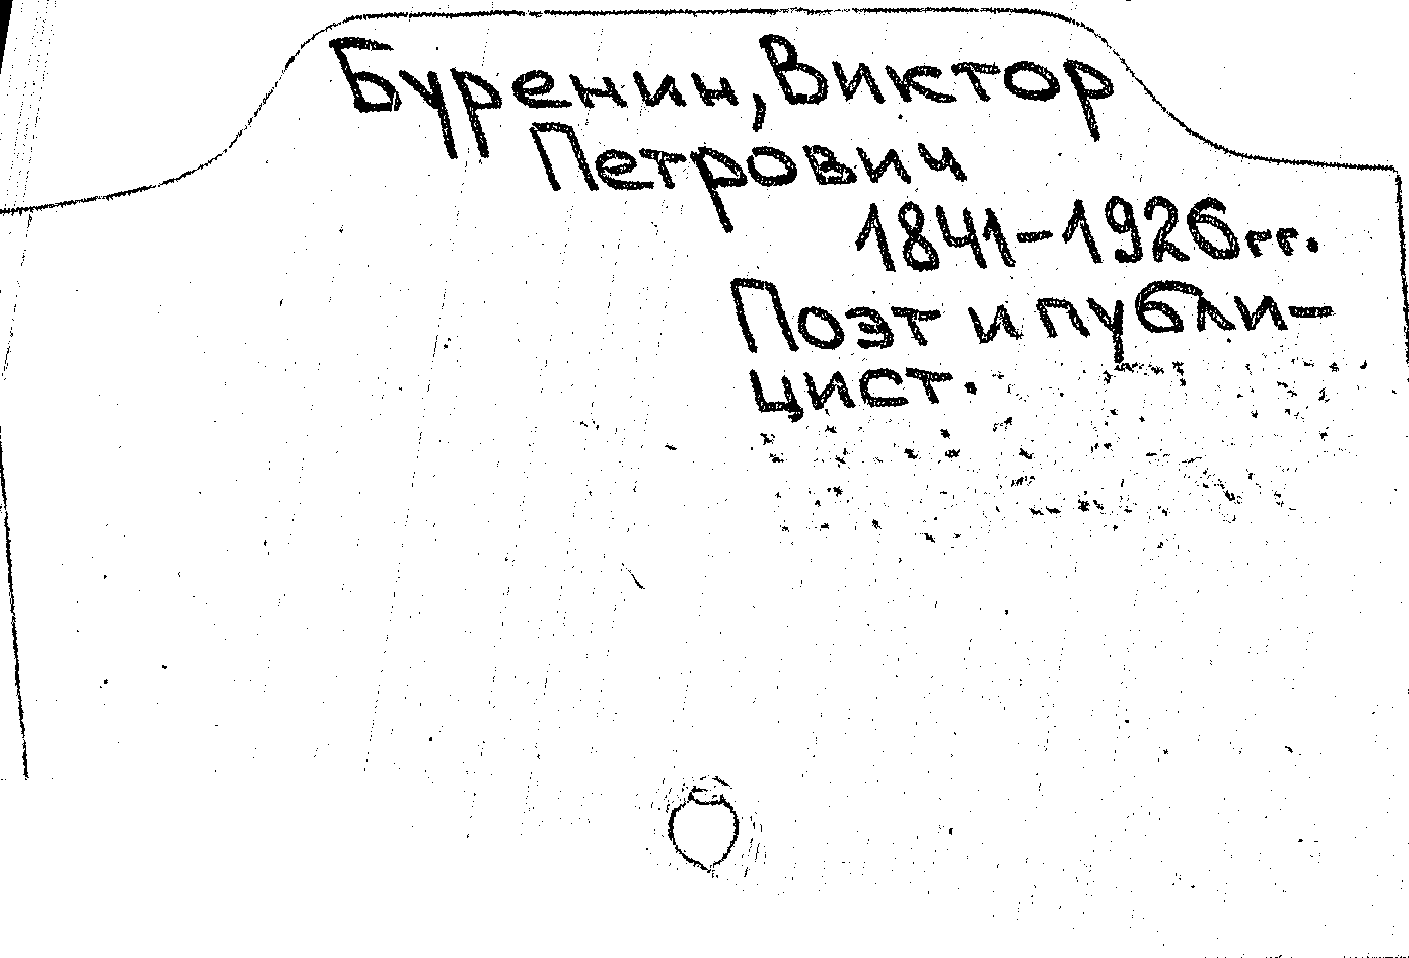 Буренин, Виктор
Петрович
1841-1926гг.
Поэт и публи-
цист.